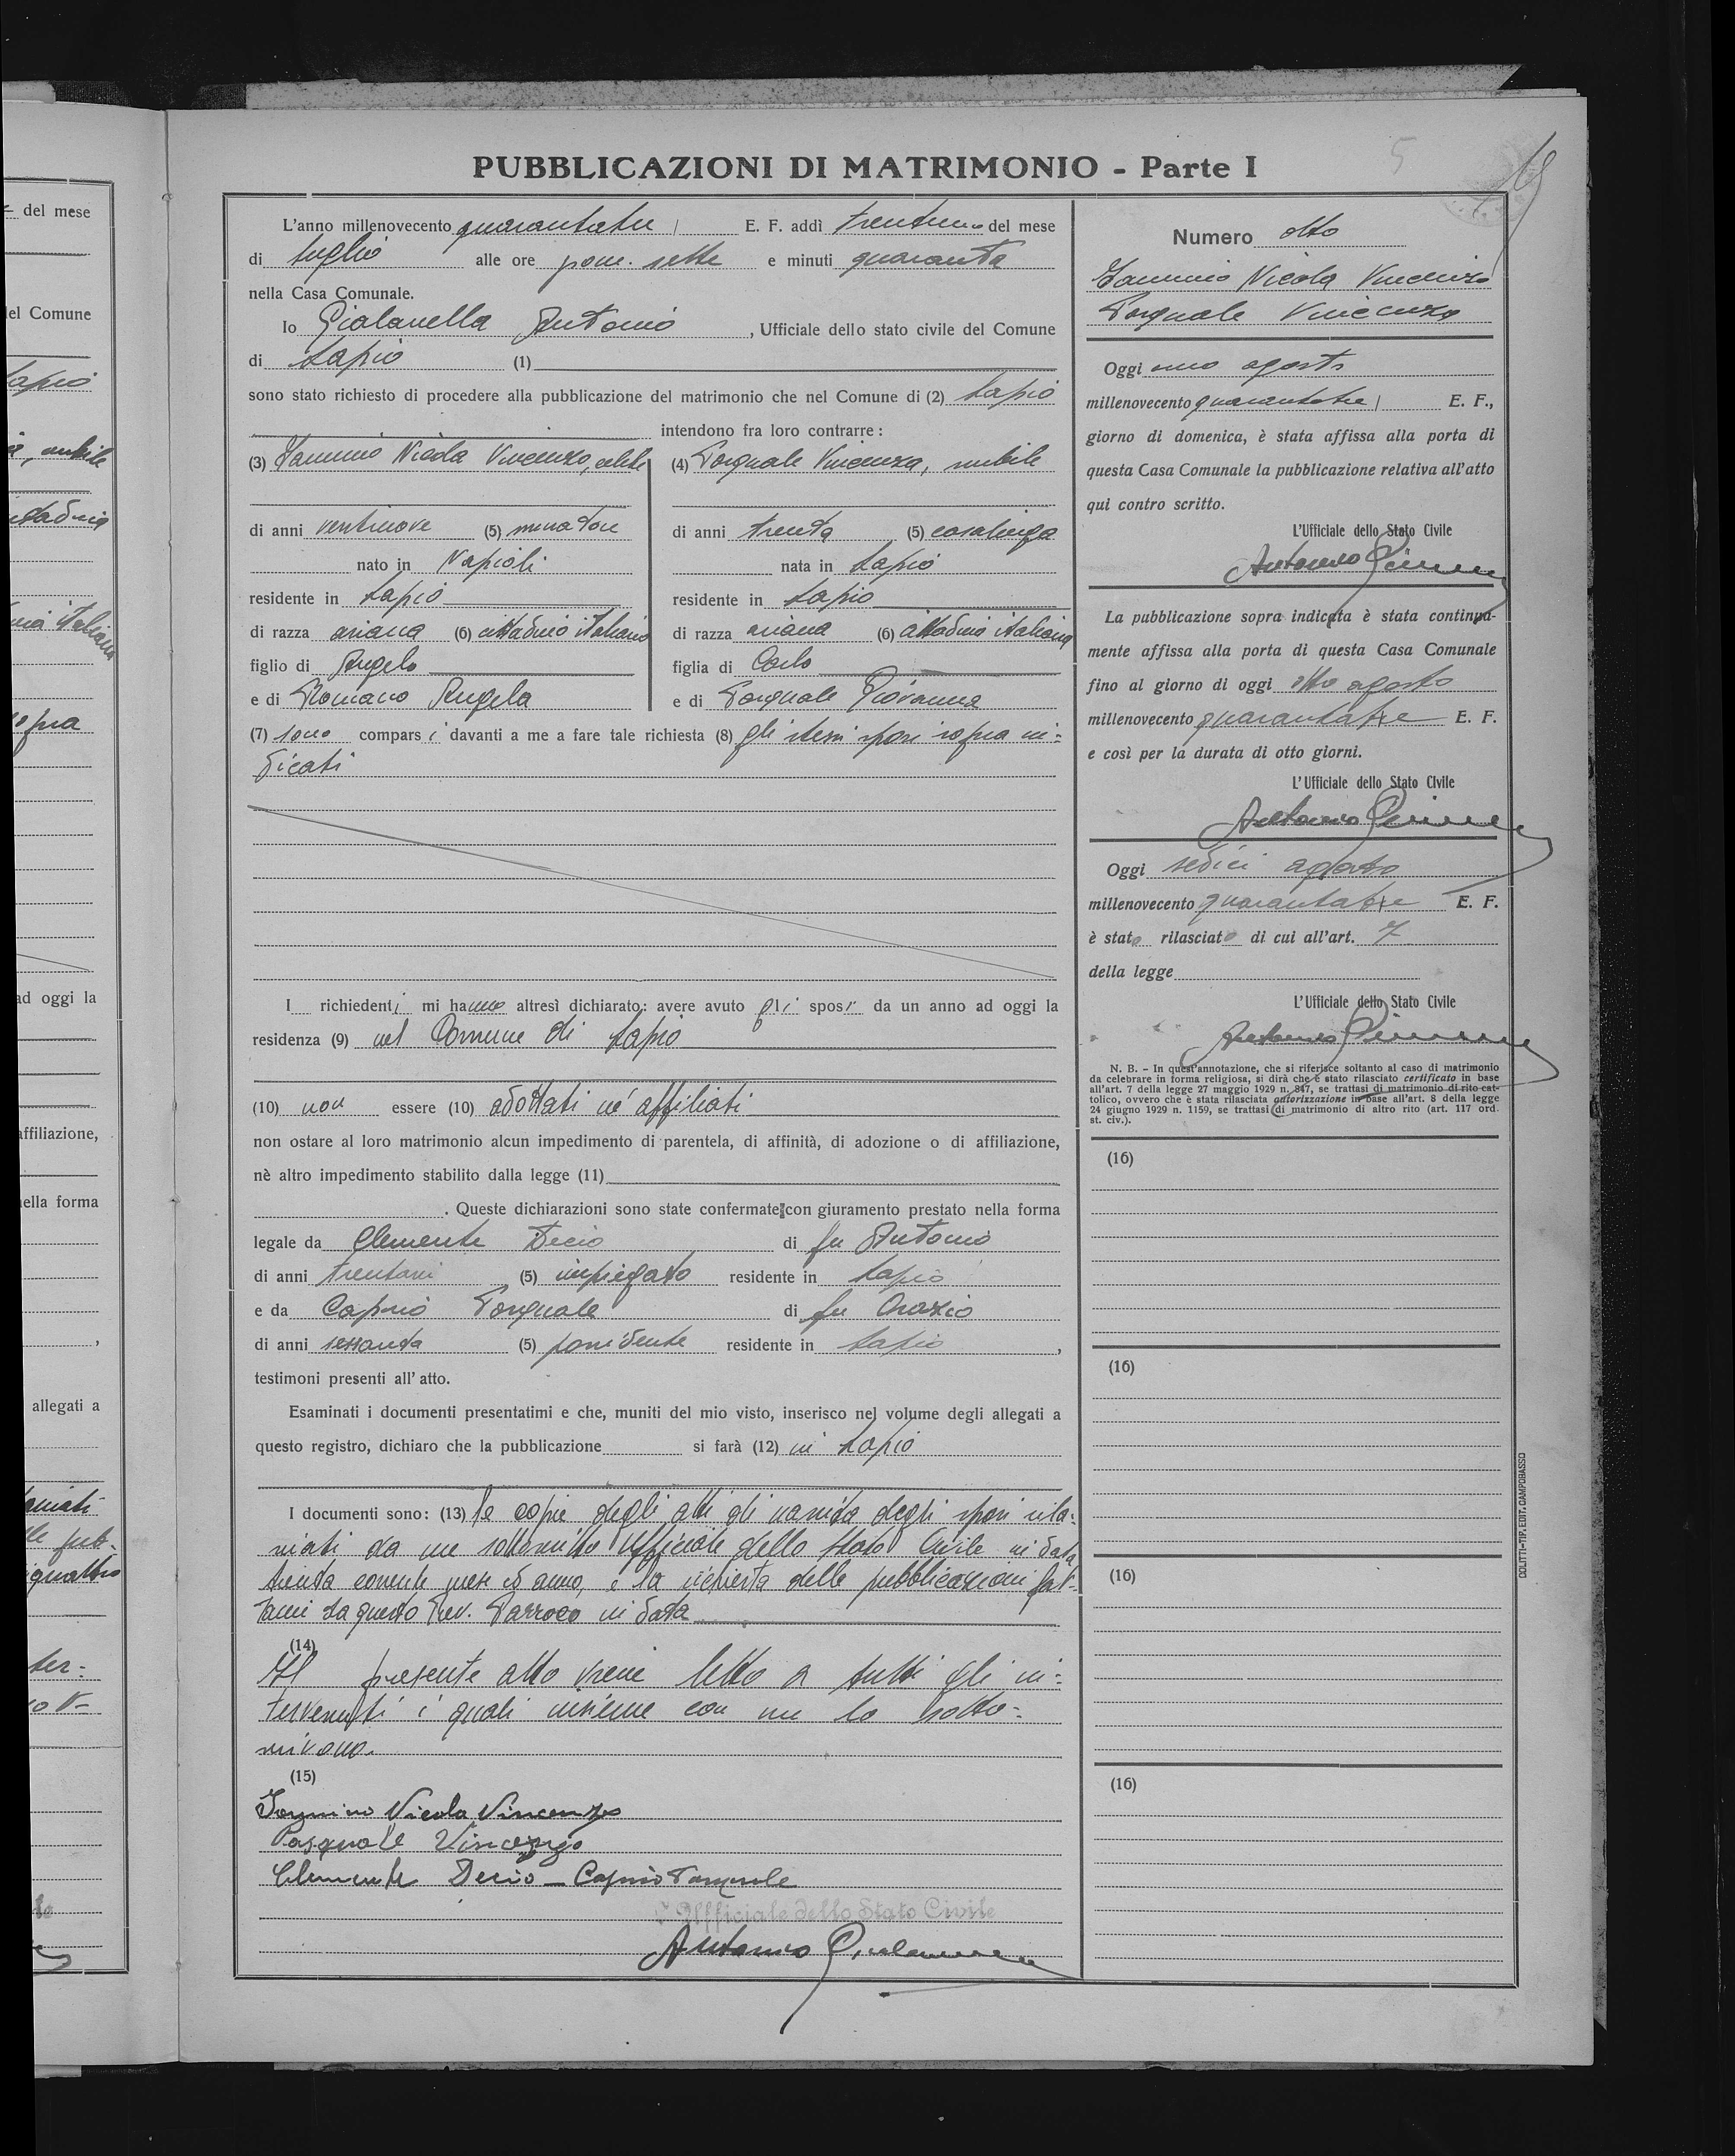 del mese
el Comune
Lapio
nubile
italiana
sopra
ad oggi la
affiliazione,
ella forma
,
allegati a
le pub-
quattro
ter=
PUBBLICAZIONI DI MATRIMONIO - Parte I
5
L'anno millenovecento quarantatre E. F. addì trentuno del mese
di luglio alle ore pom. sette e minuti quaranta
nella Casa Comunale.
Io Gialanella Antonio, Ufficiale dello stato civile del Comune
di Lapio (1)
sono stato richiesto di procedere alla pubblicazione del matrimonio che nel Comune di (2) Lapio
intendono fra loro contrarre:
(3) Iannino Nicola Vincenzo, celibe
di anni ventinove (5) minatore
nato in Napoli
residente in Lapio
di razza ariana (6) cittadino italiano
figlio di Angelo
e di Romano Angela
(4) Pasquale Vincenza, nubile
di anni trenta (5) casalinga
nata in Lapio
residente in Lapio
di razza ariana (6) cittadina italiana
figlia di Carlo
e di Pasquale Giovanna
(7) sono comparsi davanti a me a fare tale richiesta (8) gli stessi sposi sopra in=
dicati
I richiedenti mi hanno altresì dichiarato: avere avuto gli sposi da un anno ad oggi la
residenza (9) nel Comune di Lapio
(10) non essere (10) adottati nè affiliati
non ostare al loro matrimonio alcun impedimento di parentela, di affinità, di adozione o di affiliazione,
nè altro impedimento stabilito dalla legge (11)
. Queste dichiarazioni sono state confermate con giuramento prestato nella forma
legale da Clemente Decio di fu Antonio
di anni (5) impiegato residente in Lapio
e da Caprio Pasquale di fu Orazio
di anni sessanta (5) possidente residente in Lapio,
testimoni presenti all' atto.
Esaminati i documenti presentatimi e che, muniti del mio visto, inserisco nel volume degli allegati a
questo registro, dichiaro che la pubblicazione si farà (12) in Lapio
I documenti sono: (13) le copie degli atti di nascita degli sposi rila=
sciati da me sottoscritto Ufficiale dello Stato Civile in data
trenta corrente mese ed anno, e la richiesta delle pubblicazioni fat-
tami da questo Rev. Parroco in data
(14)
Il presente atto viene letto a tutti gli in=
tervenuti i quali insieme con me lo sotto=
scrivono.
(15)
Iannino Nicola Vincenzo
Pasquale Vincenza
Clemente Decio - Caprio Pasquale
L'Ufficiale dello Stato Civile
Antonio Gialanella
Numero otto
Iannino Nicola Vincenzo
Pasquale Vincenza
Oggi uno agosto
millenovecento quarantatre E. F.,
giorno di domenica, è stata affissa alla porta di
questa Casa Comunale la pubblicazione relativa all'atto
qui contro scritto.
L'Ufficiale dello Stato Civile
Antonio
La pubblicazione sopra indicata è stata continua-
mente affissa alla porta di questa Casa Comunale
fino al giorno di oggi otto agosto
millenovecento quarantatre E. F.
e così per la durata di otto giorni.
L'Ufficiale dello Stato Civile
Antonio
Oggi sedici agosto
millenovecento quarantatre E. F.
è stato rilasciato di cui all'art. 7
della legge
L'Ufficiale dello Stato Civile
Antonio
N. B. - In quest'annotazione, che si riferisce soltanto al caso di matrimonio
da celebrare in forma religiosa, si dirà che è stato rilasciato certificato in base
all'art. 7 della legge 27 maggio 1929 n. 847, se trattasi di matrimonio di rito cat-
tolico, ovvero che è stata rilasciata autorizzazione in base all'art. 8 della legge
24 giugno 1929 n. 1159, se trattasi di matrimonio di altro rito (art. 117 ord.
st. civ.).
(16)
(16)
(16)
(16)
COLITTI-TIP. EDIT. CAMPOBASSO